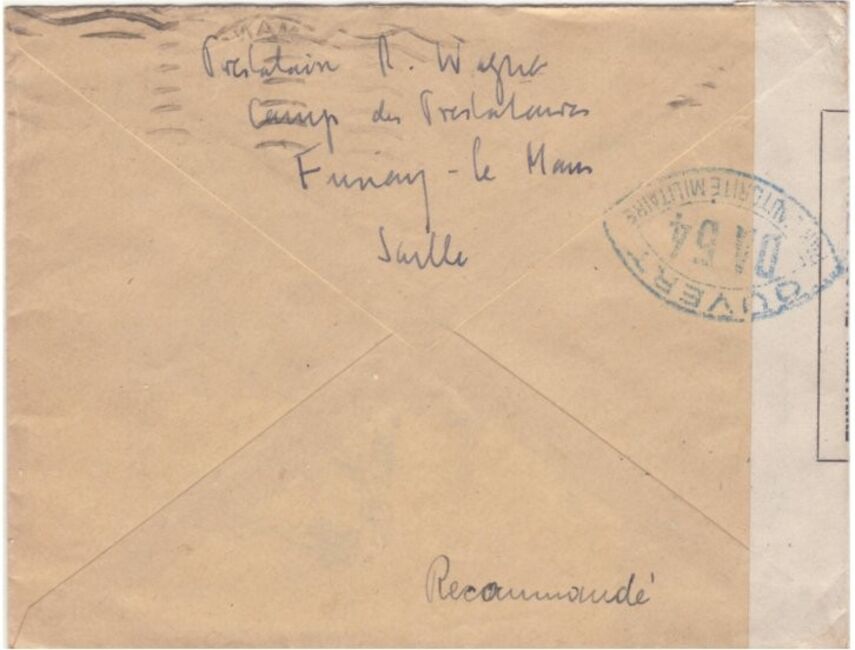 Prestataire R. Wagner
Camp des Prestataires
Le Mans
Sarthe
OUVERT
PAR L'AUTORITÉ MILITAIRE
Recommandé